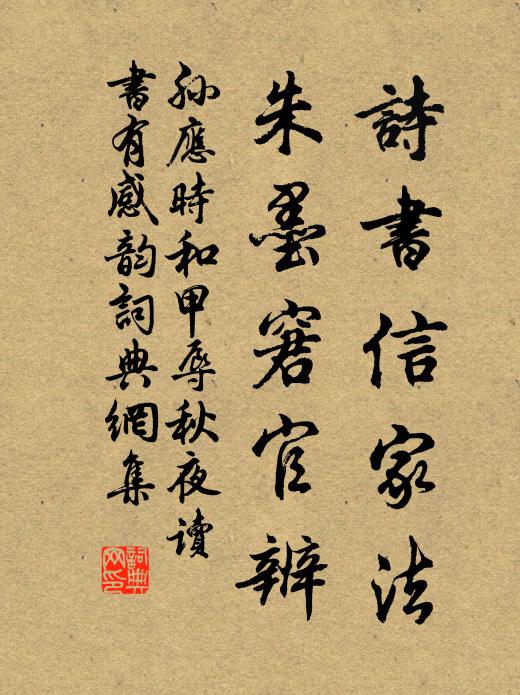 詩書信家法
朱墨窘官辦
孫應時和甲辱秋夜讀
書有感韵詞典網集
詞典网印